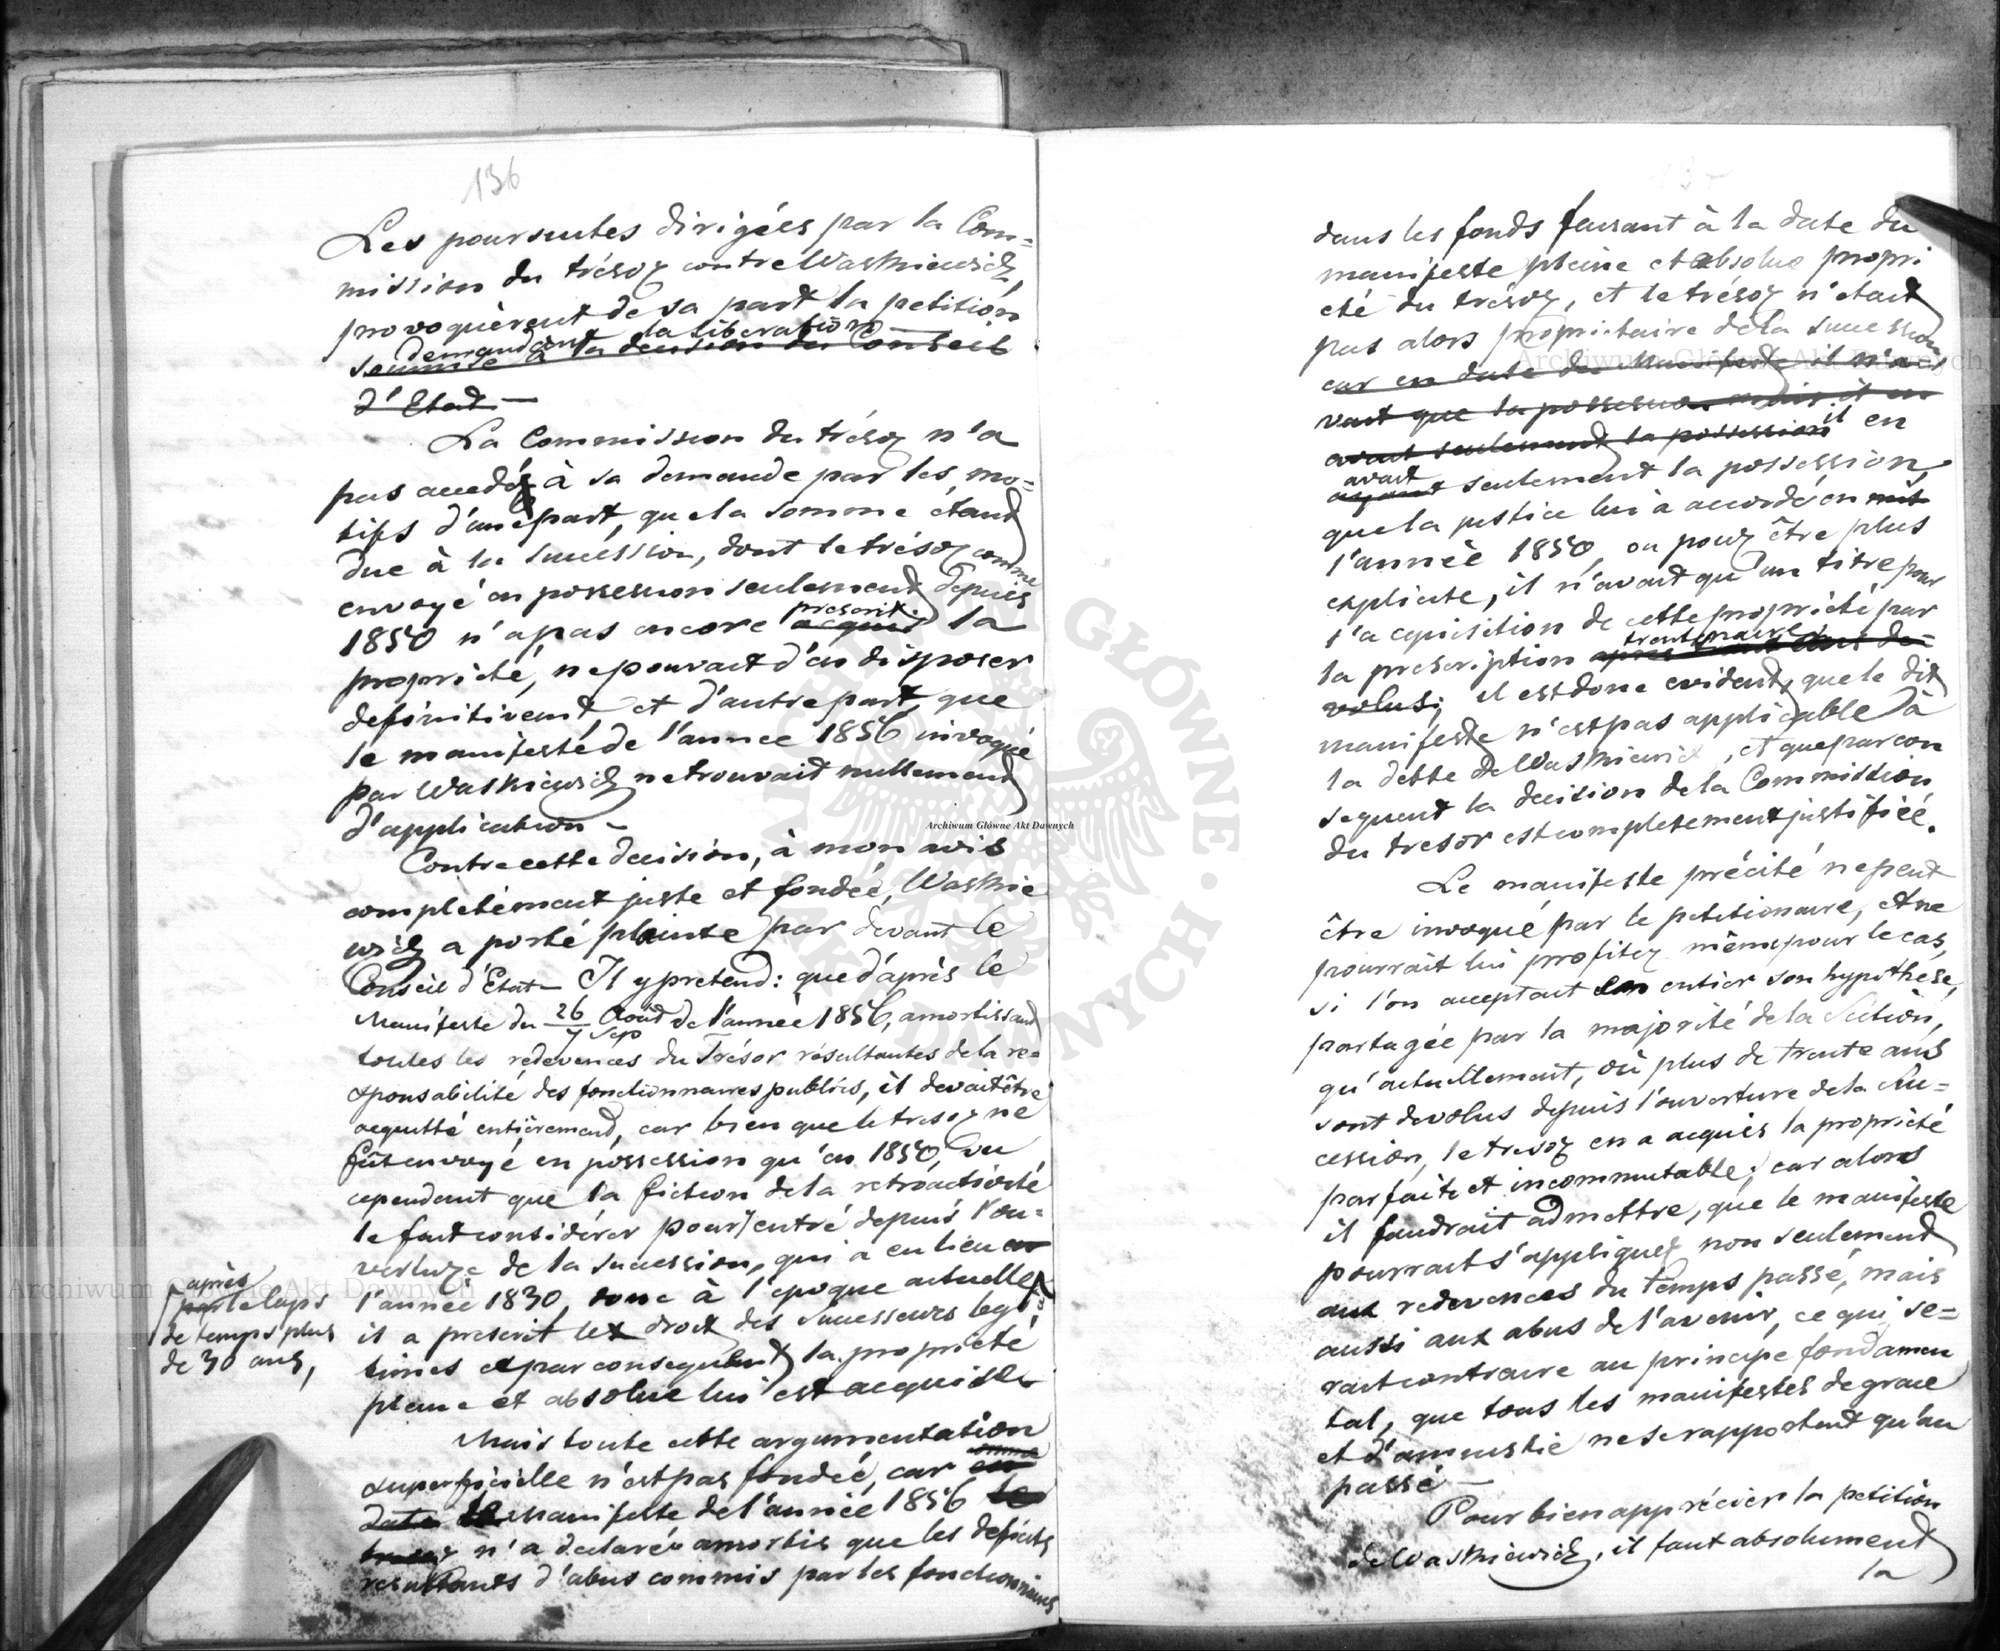 136
Les poursuites dirigées par la Com=
mission du trésor contre Waskiewicz,
provoquèrent de sa part la petition
demandant la libération
soumise à la decision du Conseil
d'Etat —
La Commission du trésor n'a
pas accedé à sa demande par les mo=
tifs d'une part, que la somme étant
due à la succession, dont le trésor comme
envoyé en possession seulement depuis
1850 n'a pas encore prescrit acquis la
propriété, ne pouvait d'en disposer
definitivement, et d'autre part, que
le manifeste de l'annee 1856 invoqué
par Waskiewicz ne trouvait nullement
d'application —
Contre cette decision, à mon avis
completement juste et fondée, Waskie
wicz a porté plainte par devant le
Conseil d'Etat — Il y pretend: que d'après le
Manifeste du 26/7 Août/Sep de l'année 1856, amortissant
toutes les redevences du Trésor résultantes de la re=
sponsabilité des fonctionnaires publics, il devait être
acquitté entièrement, car bien que le tresor ne
fût envoyé en possession qu'en 1850, vu
cependant que la fiction de la retroactivité
le fait considérer pour entré depuis l'ou=
verture de la succession, qui a eu lieu en
l'année 1830, donc à l'epoque actuelle
après
par le laps
de temps plus
de 30 ans,
il a prescrit les droits des successeurs legi
times et par consequent la propriété
pleine et absolue lui est acquise —
Mais toute cette argumentation
superficielle n'est pas fondée, car en
date le manifeste de l'année 1856 le
tresor n'a declaré amortis que les deficits
resultants d'abus commis par les fonctionnaires
dans les fonds faisant à la date du
manifeste pleine et absolue propri
eté du trésor, et le trésor n'etait
pas alors propriétaire de la succession
car en date du Manifeste il n'a
vait que la possession mais il en
avait seulement la possession il en
avait
ayant seulement la possession,
que la justice lui a accordé en
l'année 1850, ou pour être plus
explicite, il n'avait qu'un titre pour
l'acquisition de cette propriété par
trentenaire
la prescription après trente ans de
volus; il est donc evident, que le dit
manifeste n'est pas applicable à
la dette de Waskiewicz, et que par con
sequent la decision de la Commission
du tresor est completement justifiée.
Le manifeste précité ne peut
être invoqué par le petitionaire, et ne
pourrait lui profiter même pour le cas,
si l'on acceptait en entier son hypothese,
partagée par la majorité de la Section,
qu'actuellement, où plus de trente ans
sont devolus depuis l'ouverture de la Suc=
cession, le tresor en a acquis la propriété
parfaite et incommutable; car alors
il faudrait admettre, que le manifeste
pourrait s'appliquer non seulement
aux redevences du temps passé, mais
aussi aux abus de l'avenir, ce qui se=
rait contraire au principe fondamen
tal, que tous les manifestes de grace
et d'amnistie ne se rapportent qu'au
passé —
Pour bien apprécier la petition
de Waskiewicz, il faut absolument
la
Archiwum Główne Akt Dawnych
Archiwum Główne Akt Dawnych
Archiwum Główne Akt Dawnych
ARCHIWUM GŁÓWNE AKT DAWNYCH